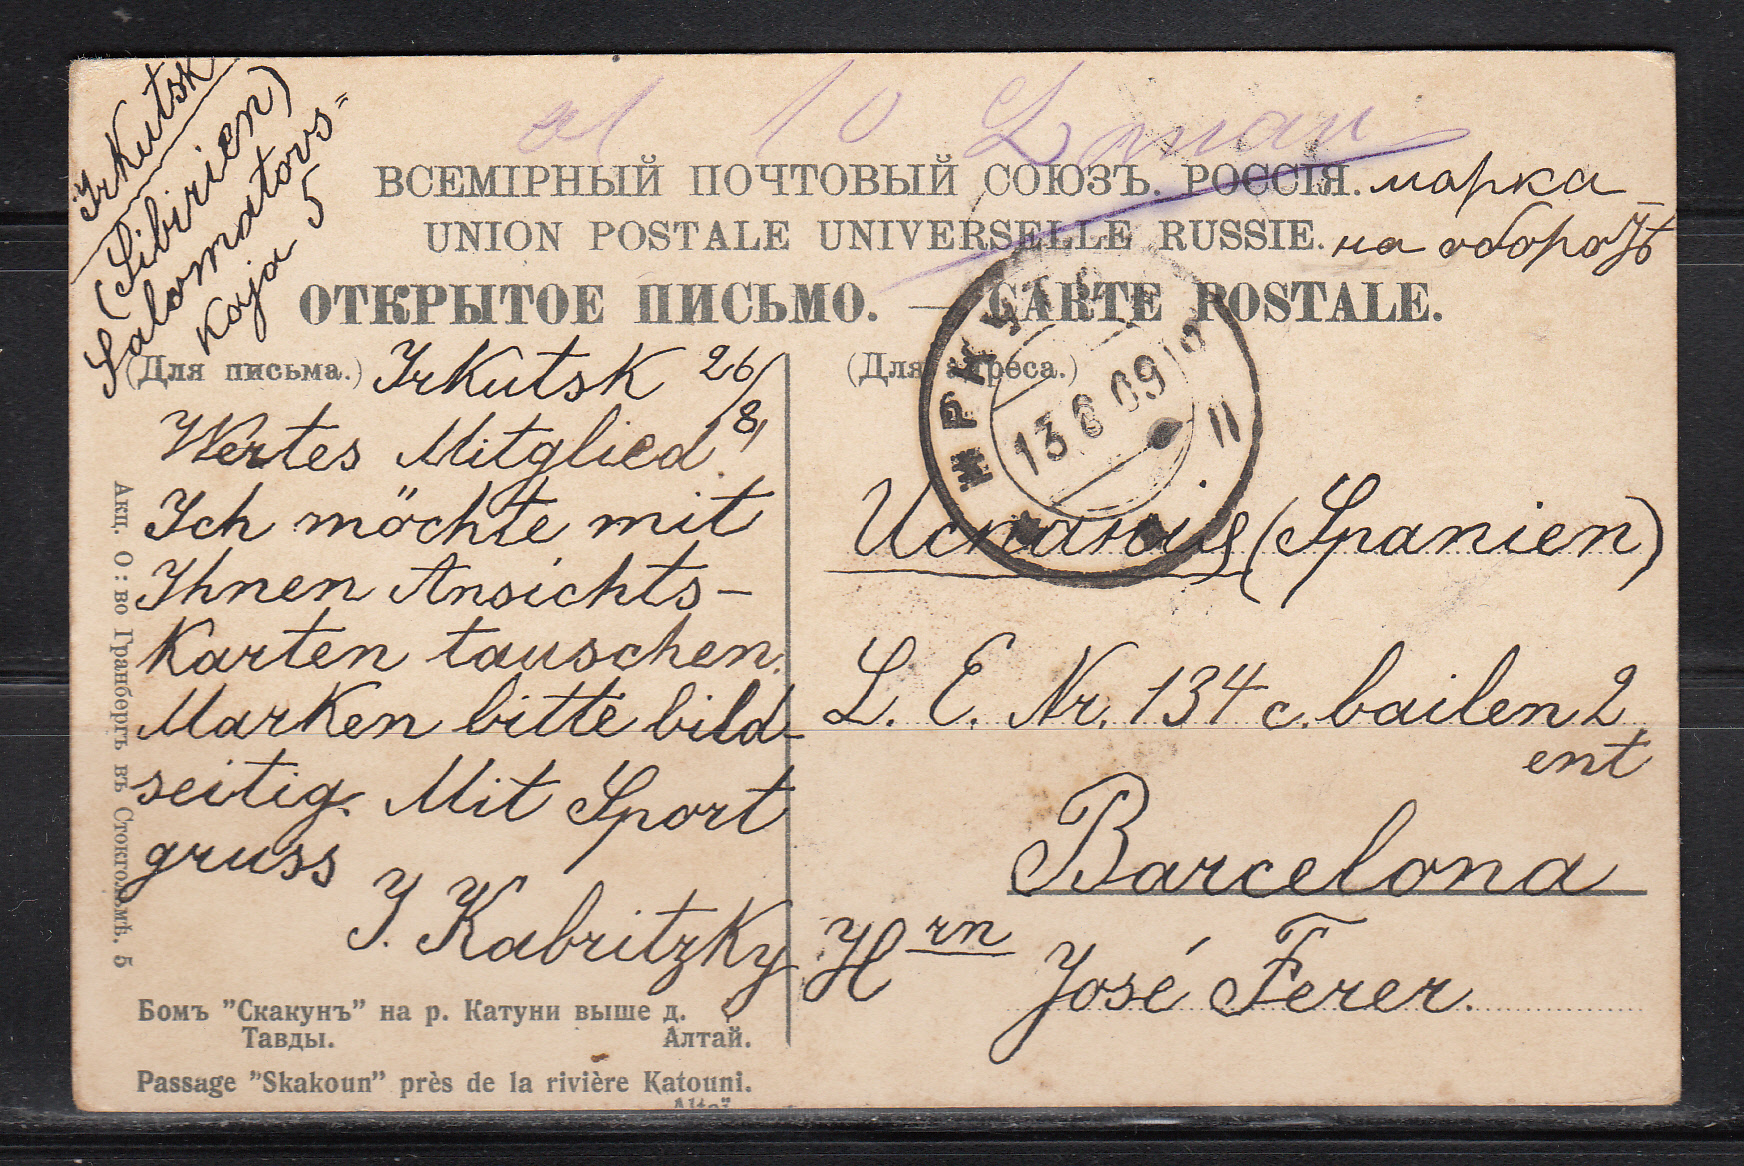 Irkutsk
(Sibirien)
Salomatovs=
Kaja 5
al 10
ВСЕМІРНЫЙ ПОЧТОВЫЙ СОЮЗЪ. РОССІЯ. марка
UNION POSTALE UNIVERSELLE RUSSIE. на оборотѣ
ОТКРЫТОЕ ПИСЬМО. — CARTE POSTALE.
(Для письма.) Irkutsk 26/8,
Wertes Mitglied!
Ich möchte mit
Ihnen Ansichts-
Karten tauschen.
Marken bitte bild-
seitig. Mit Sport
gruss
J. Kabritzky
Бомъ "Скакунъ" на р. Катуни выше д.
Тавды. Алтай.
Passage "Skakoun" près de la rivière Katouni.
Altaï.
Акц. О: во Гранбергъ въ Стокгольмѣ. 5
(Для адреса.)
ИРКУТС
13 8 09
Испанія (Spanien)
L. E. Nr. 134 c. bailen 2
ent
Barcelona
Hrn José Ferer.